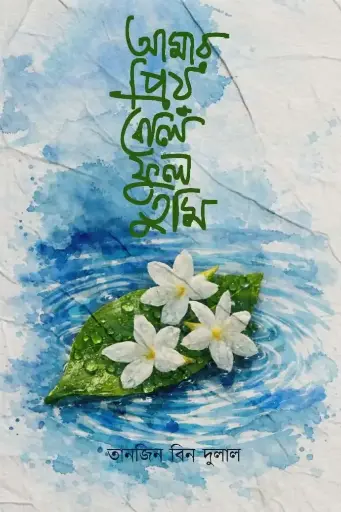 আমার
প্রিয়
বেলি
ফুল
তুমি
তানজিন বিন দুলাল